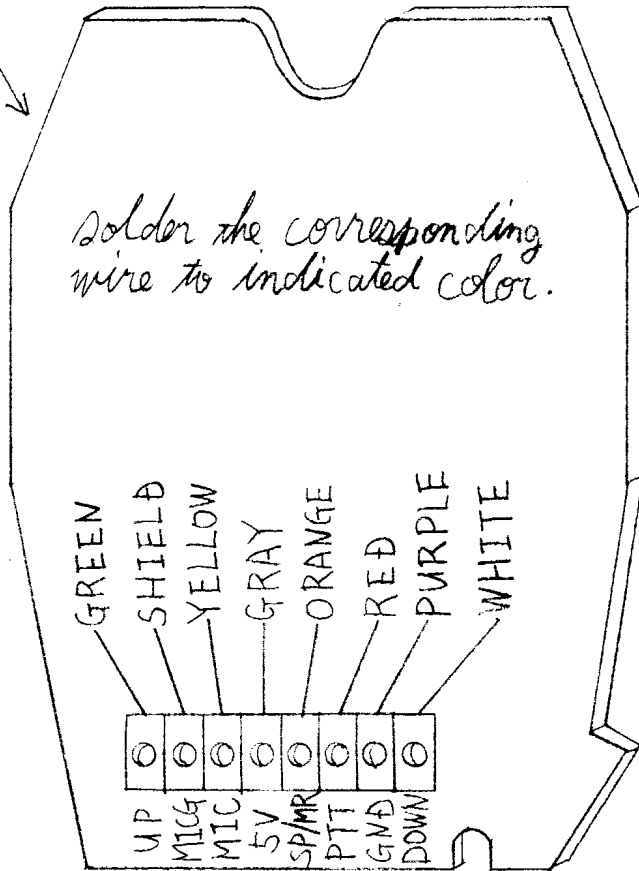 solder the corresponding
wire to indicated color.
GREEN
SHIELD
YELLOW
GRAY
ORANGE
RED
PURPLE
WHITE
UP
MICG
MIC
5V
SP/MR
PTT
GND
DOWN